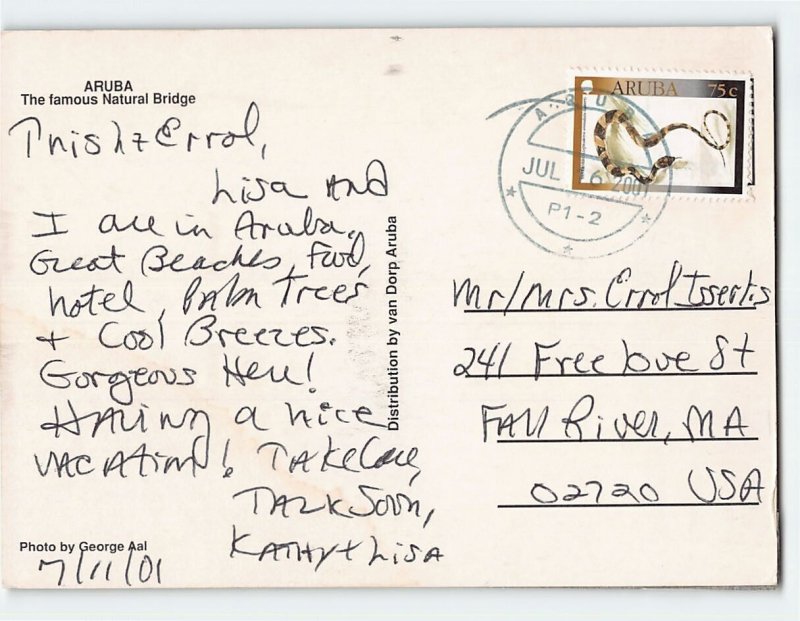 ARUBA
The famous Natural Bridge
Trish + Errol,
Lisa And
I are in Aruba,
Great Beaches, Food,
hotel, Palm Trees
+ Cool Breezes.
Gorgeous Here!
HAving a nice
VACAtion! TAKe Care,
TALK Soon,
KATHY + LisA
Photo by George Aal
7/11/01
Distribution by van Dorp Aruba
ARUBA 75c
ARUBA
JUL 16 2001
P1-2
Mr/Mrs. Errol Isserlis
241 Freelove St
FAll River, MA
02720 USA